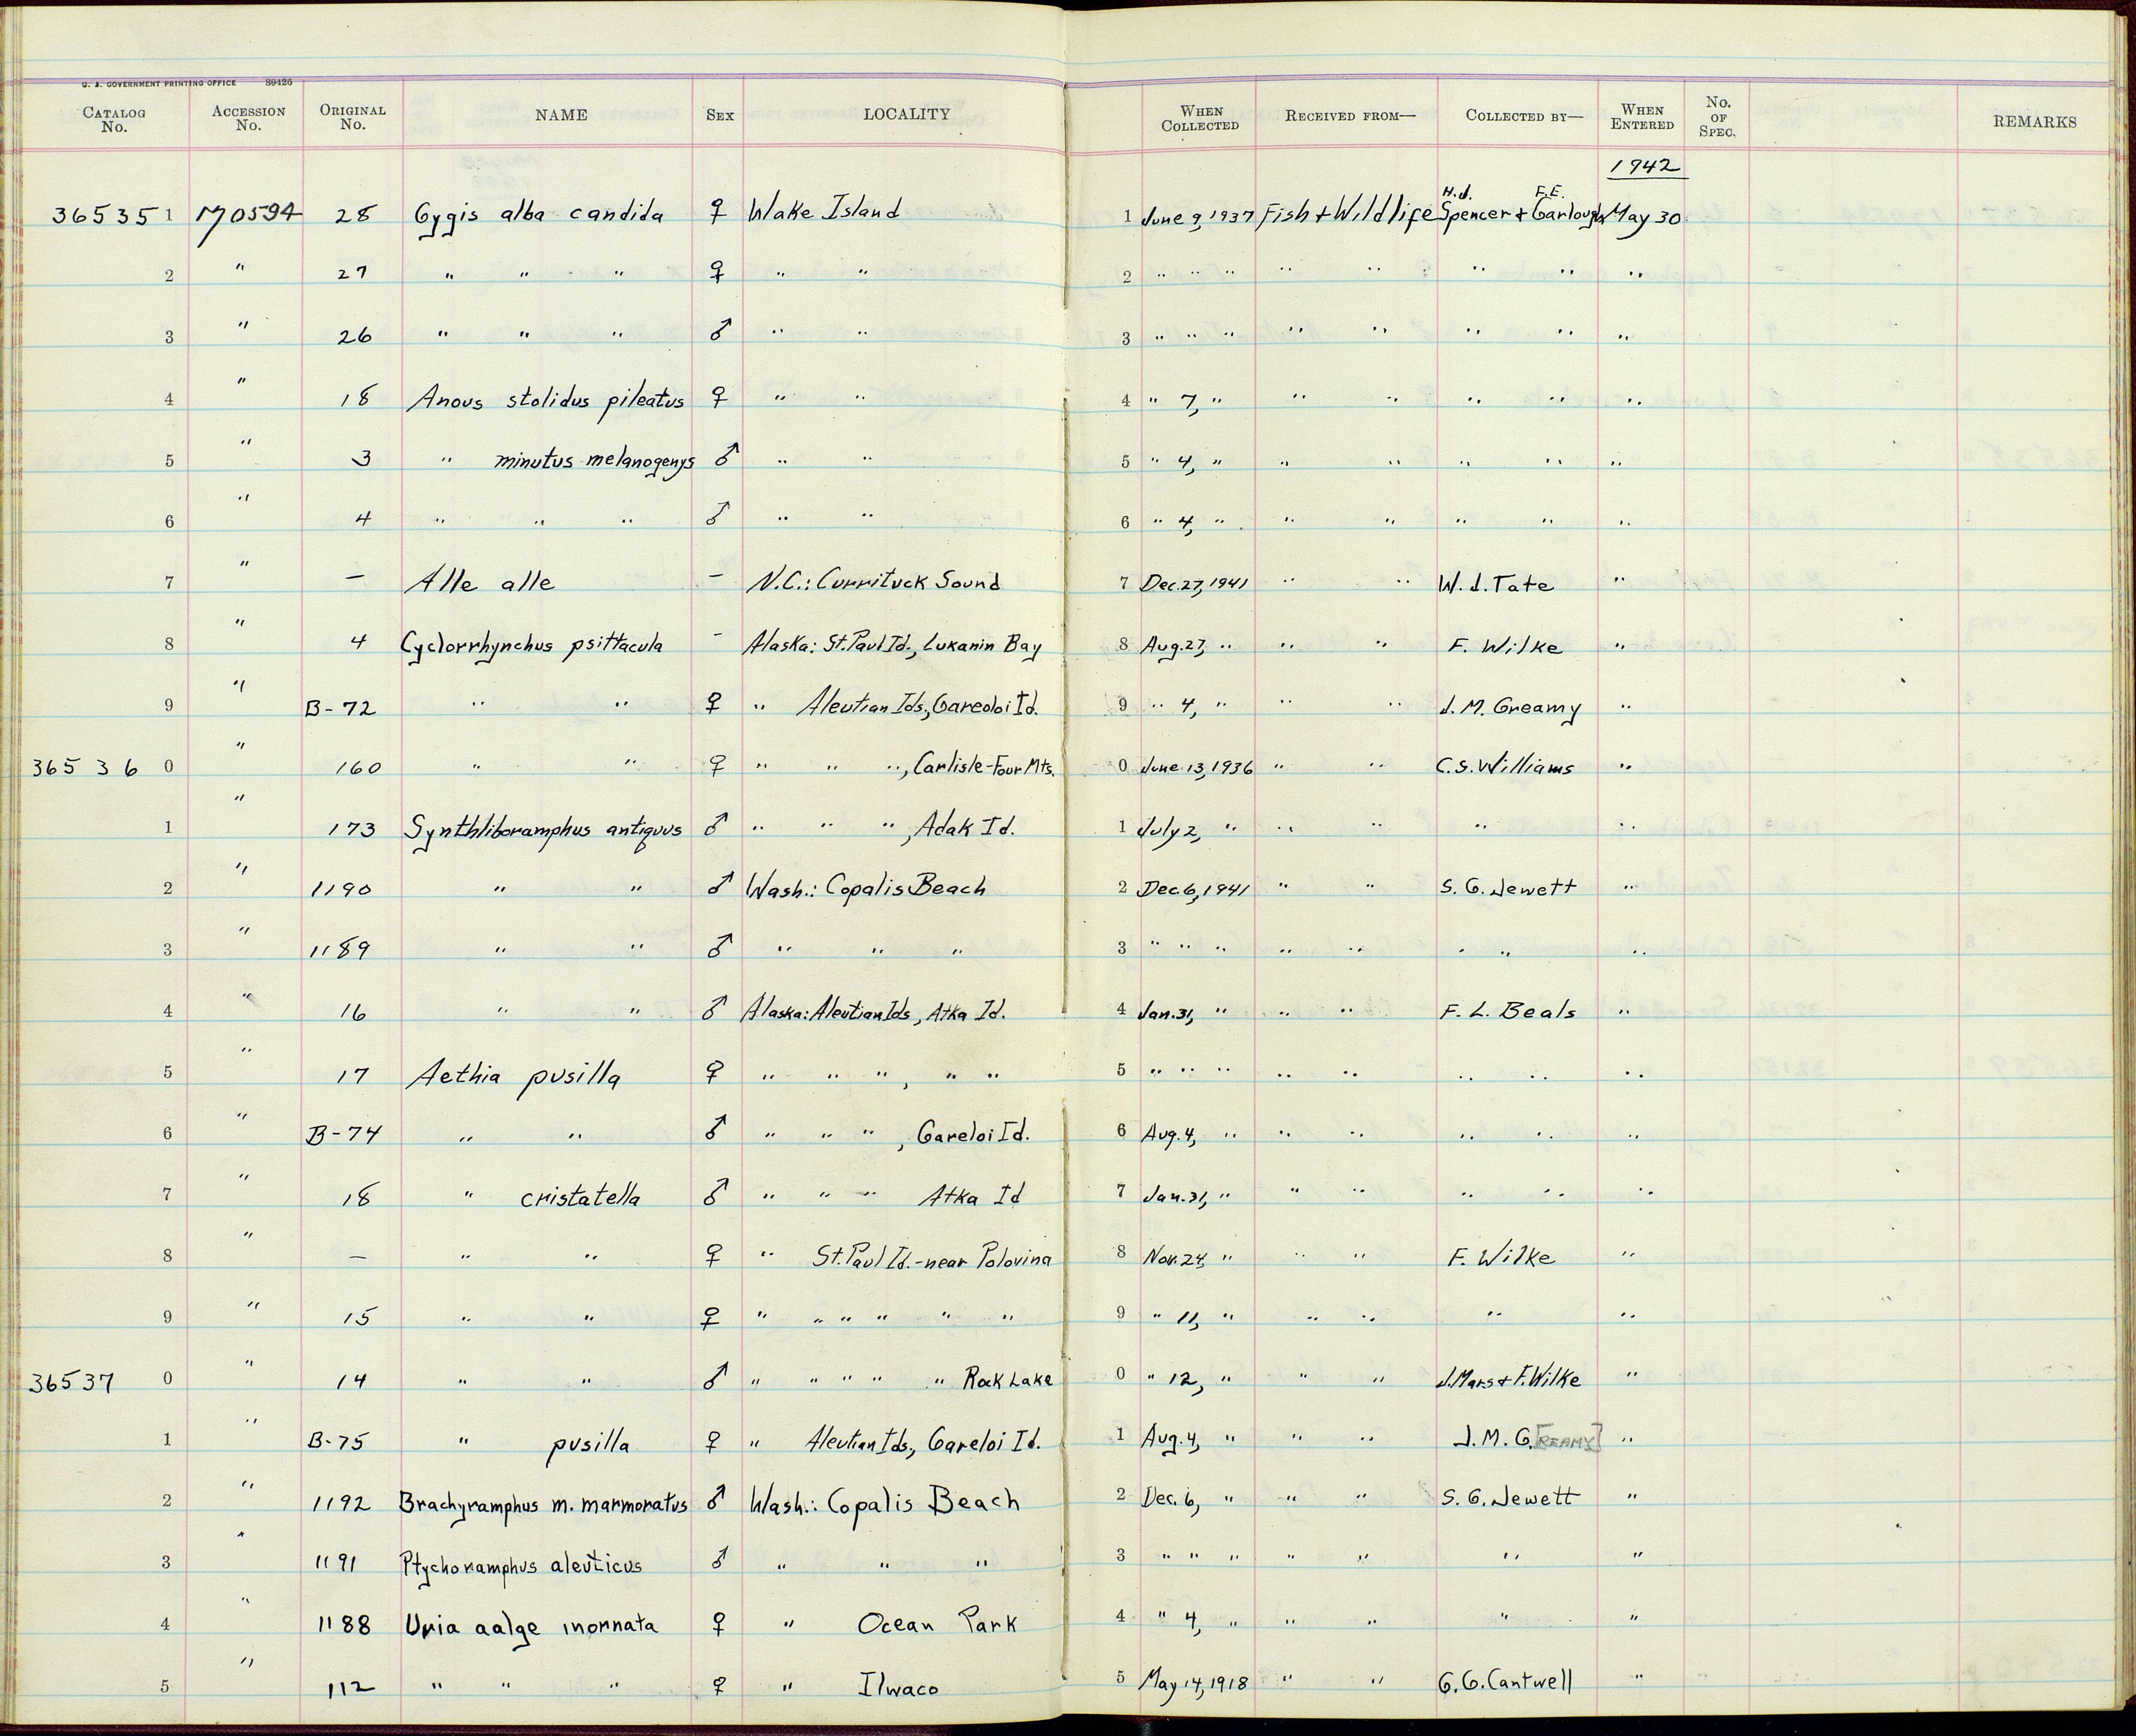 U. S. GOVERNMENT PRINTING OFFICE 89426
CATALOG No. ACCESSION No. ORIGINAL No. NAME SEX LOCALITY WHEN COLLECTED RECEIVED FROM— COLLECTED BY— WHEN ENTERED No. OF SPEC. REMARKS
1942
36535 1 170594 28 Gygis alba candida ♀ Wake Island 1 June 9, 1937 Fish + Wildlife H.J. Spencer + F.E. Garlough May 30
2 " 27 " " " ♀ " " 2 " " " " " " " "
3 " 26 " " " ♂ " " 3 " " " " " " " "
4 " 18 Anous stolidus pileatus ♀ " " 4 " 7, " " " " " "
5 " 3 " minutus melanogenys ♂ " " 5 " 4, " " " " " "
6 " 4 " " " ♂ " " 6 " 4, " " " " " "
7 " — Alle alle — N.C.: Currituck Sound 7 Dec. 27, 1941 " " W. J. Tate "
8 " 4 Cyclorrhynchus psittacula - Alaska: St. Paul Id., Lukanin Bay 8 Aug. 27, " " " F. Wilke "
9 " B-72 " " ♀ " Aleutian Ids., Gareoloi Id. 9 " 4, " " " J. M. Greamy "
36536 0 " 160 " " ♀ " " ", Carlisle-Four Mts. 0 June 13, 1936 " " C.S. Williams "
1 " 173 Synthliboramphus antiquus ♂ " " ", Adak Id. 1 July 2, " " " " "
2 " 1190 " " ♂ Wash.: Copalis Beach 2 Dec. 6, 1941 " " S. G. Jewett "
3 " 1189 " " ♂ " " " 3 " " " " " " " "
4 " 16 " " ♂ Alaska: Aleutian Ids, Atka Id. 4 Jan. 31, " " " F. L. Beals "
5 " 17 Aethia pusilla ♀ " " ", " " 5 " " " " " " " "
6 " B-74 " " ♂ " " ", Gareloi Id. 6 Aug. 4, " " " " " "
7 " 18 " cristatella ♂ " " " Atka Id 7 Jan. 31, " " " " " "
8 " — " " ♀ " St. Paul Id.-near Polovina 8 Nov. 24, " " " F. Wilke "
9 " 15 " " ♀ " " " " " " 9 " 11, " " " " "
36537 0 " 14 " " ♂ " " " " " Rock Lake 0 " 12, " " " J. Mars + F. Wilke "
1 " B-75 " pusilla ♀ " Aleutian Ids., Gareloi Id. 1 Aug. 4, " " " J. M. G.[REAMY] "
2 " 1192 Brachyramphus m. marmoratus ♂ Wash.: Copalis Beach 2 Dec. 6, " " " S. G. Jewett "
3 " 1191 Ptychoramphus aleuticus ♂ " " " 3 " " " " " " "
4 " 1188 Uria aalge inornata ♀ " Ocean Park 4 " 4, " " " " "
5 " 112 " " " ♀ " Ilwaco 5 May 14, 1918 " " G. G. Cantwell "